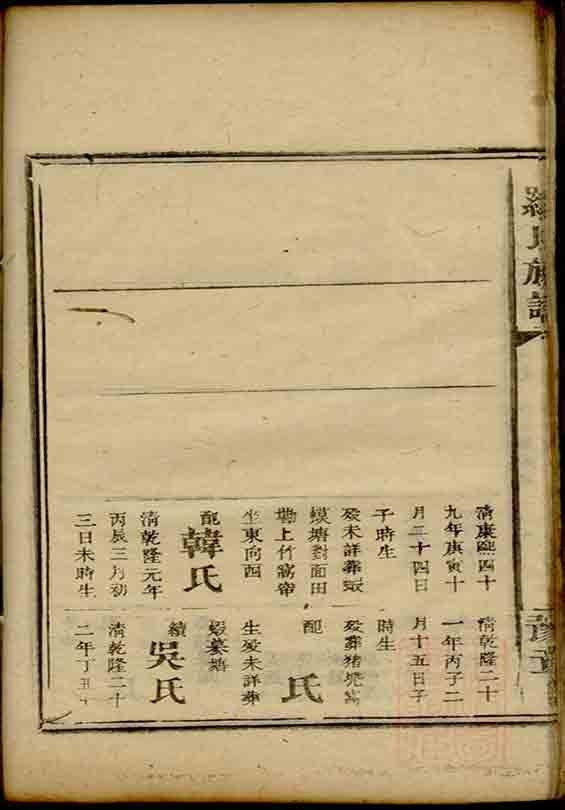 氏族譜
清康熙四十
九年庚寅十
月二十四日
子時生
歿未詳葬蝦
蟆塘對面田
墈上竹窩
坐東向西
配韓氏
清乾隆元年
丙辰三月初
三日未時生
清乾隆二十
一年丙子二
月十五日子
時生
歿葬猪兜窩
配 氏
生歿未詳葬
蝦蟇塘
續吳氏
清乾隆二十
二年丁丑十